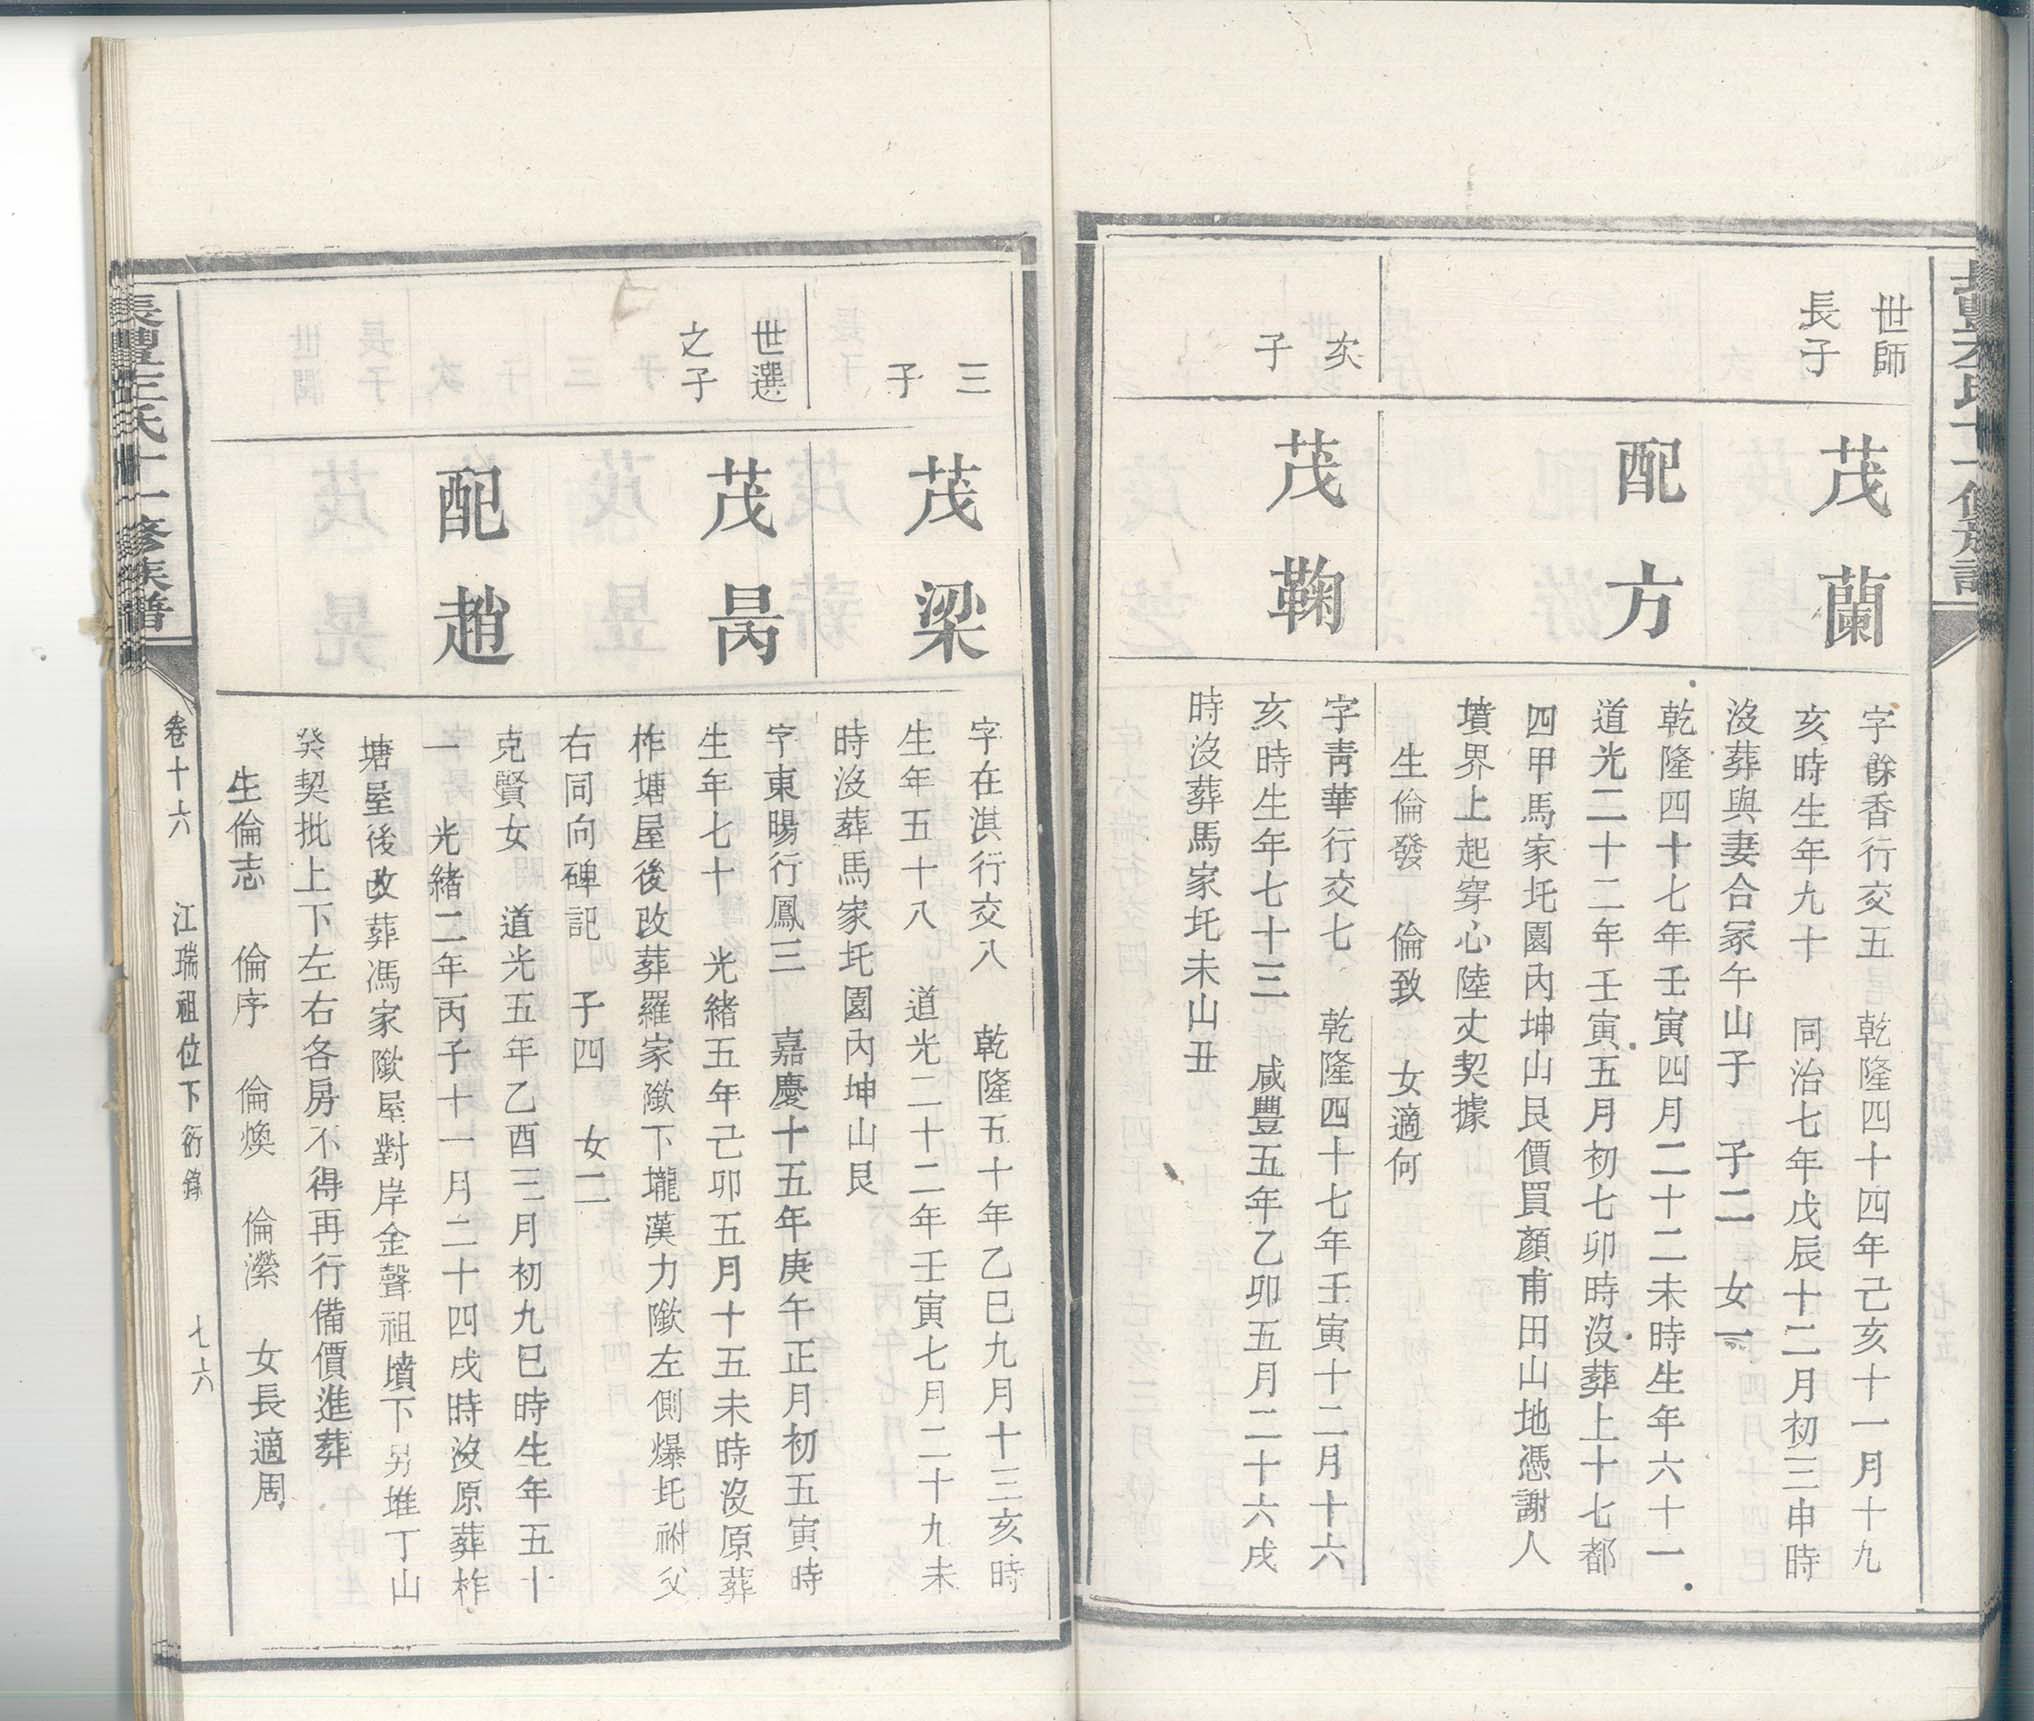 世師
長子
茂蘭
字餘香行交五 乾隆四十四年己亥十一月十九
亥時生年九十 同治七年戊辰十二月初三申時
沒葬與妻合冢午山子 子二 女一
配方
乾隆四十七年壬寅四月二十二未時生年六十一
道光二十二年壬寅五月初七卯時沒葬上十七都
四甲馬家圫園內坤山艮價買顏甫田山地憑謝人
墳界上起穿心陸丈契據
生倫發 倫致 女適何
次
子
茂鞠
字青華行交七 乾隆四十七年壬寅十二月十六
亥時生年七十三 咸豐五年乙卯五月二十六戌
時沒葬馬家圫未山丑
三
子
茂梁
字在淇行交八 乾隆五十年乙巳九月十三亥時
生年五十八 道光二十二年壬寅七月二十九未
時沒葬馬家圫園內坤山艮
世選
之子
茂昺
字東暘行鳳三 嘉慶十五年庚午正月初五寅時
生年七十 光緒五年己卯五月十五未時沒原葬
柞塘屋後改葬羅家隞下壠漢力隞左側爆圫祔父
右同向碑記 子四 女二
配趙
克賢女 道光五年乙酉三月初九巳時生年五十
一 光緒二年丙子十一月二十四戌時沒原葬柞
塘屋後改葬馮家隞屋對岸金聲祖墳下另堆丁山
癸契批上下左右各房不得再行備價進葬
生倫志 倫序 倫煥 倫瀠 女長適周
卷十六 江瑞祖位下衍錄 七六
長豐王氏十一修族譜